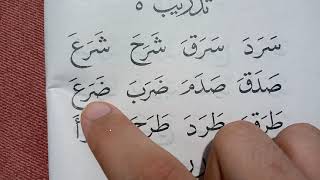 تدريب ٥
سَرَدَ سَرَقَ شَرَحَ شَرَعَ
صَدَقَ صَدَمَ ضَرَبَ ضَرَعَ
طَرَقَ طَرَدَ طَرَحَ